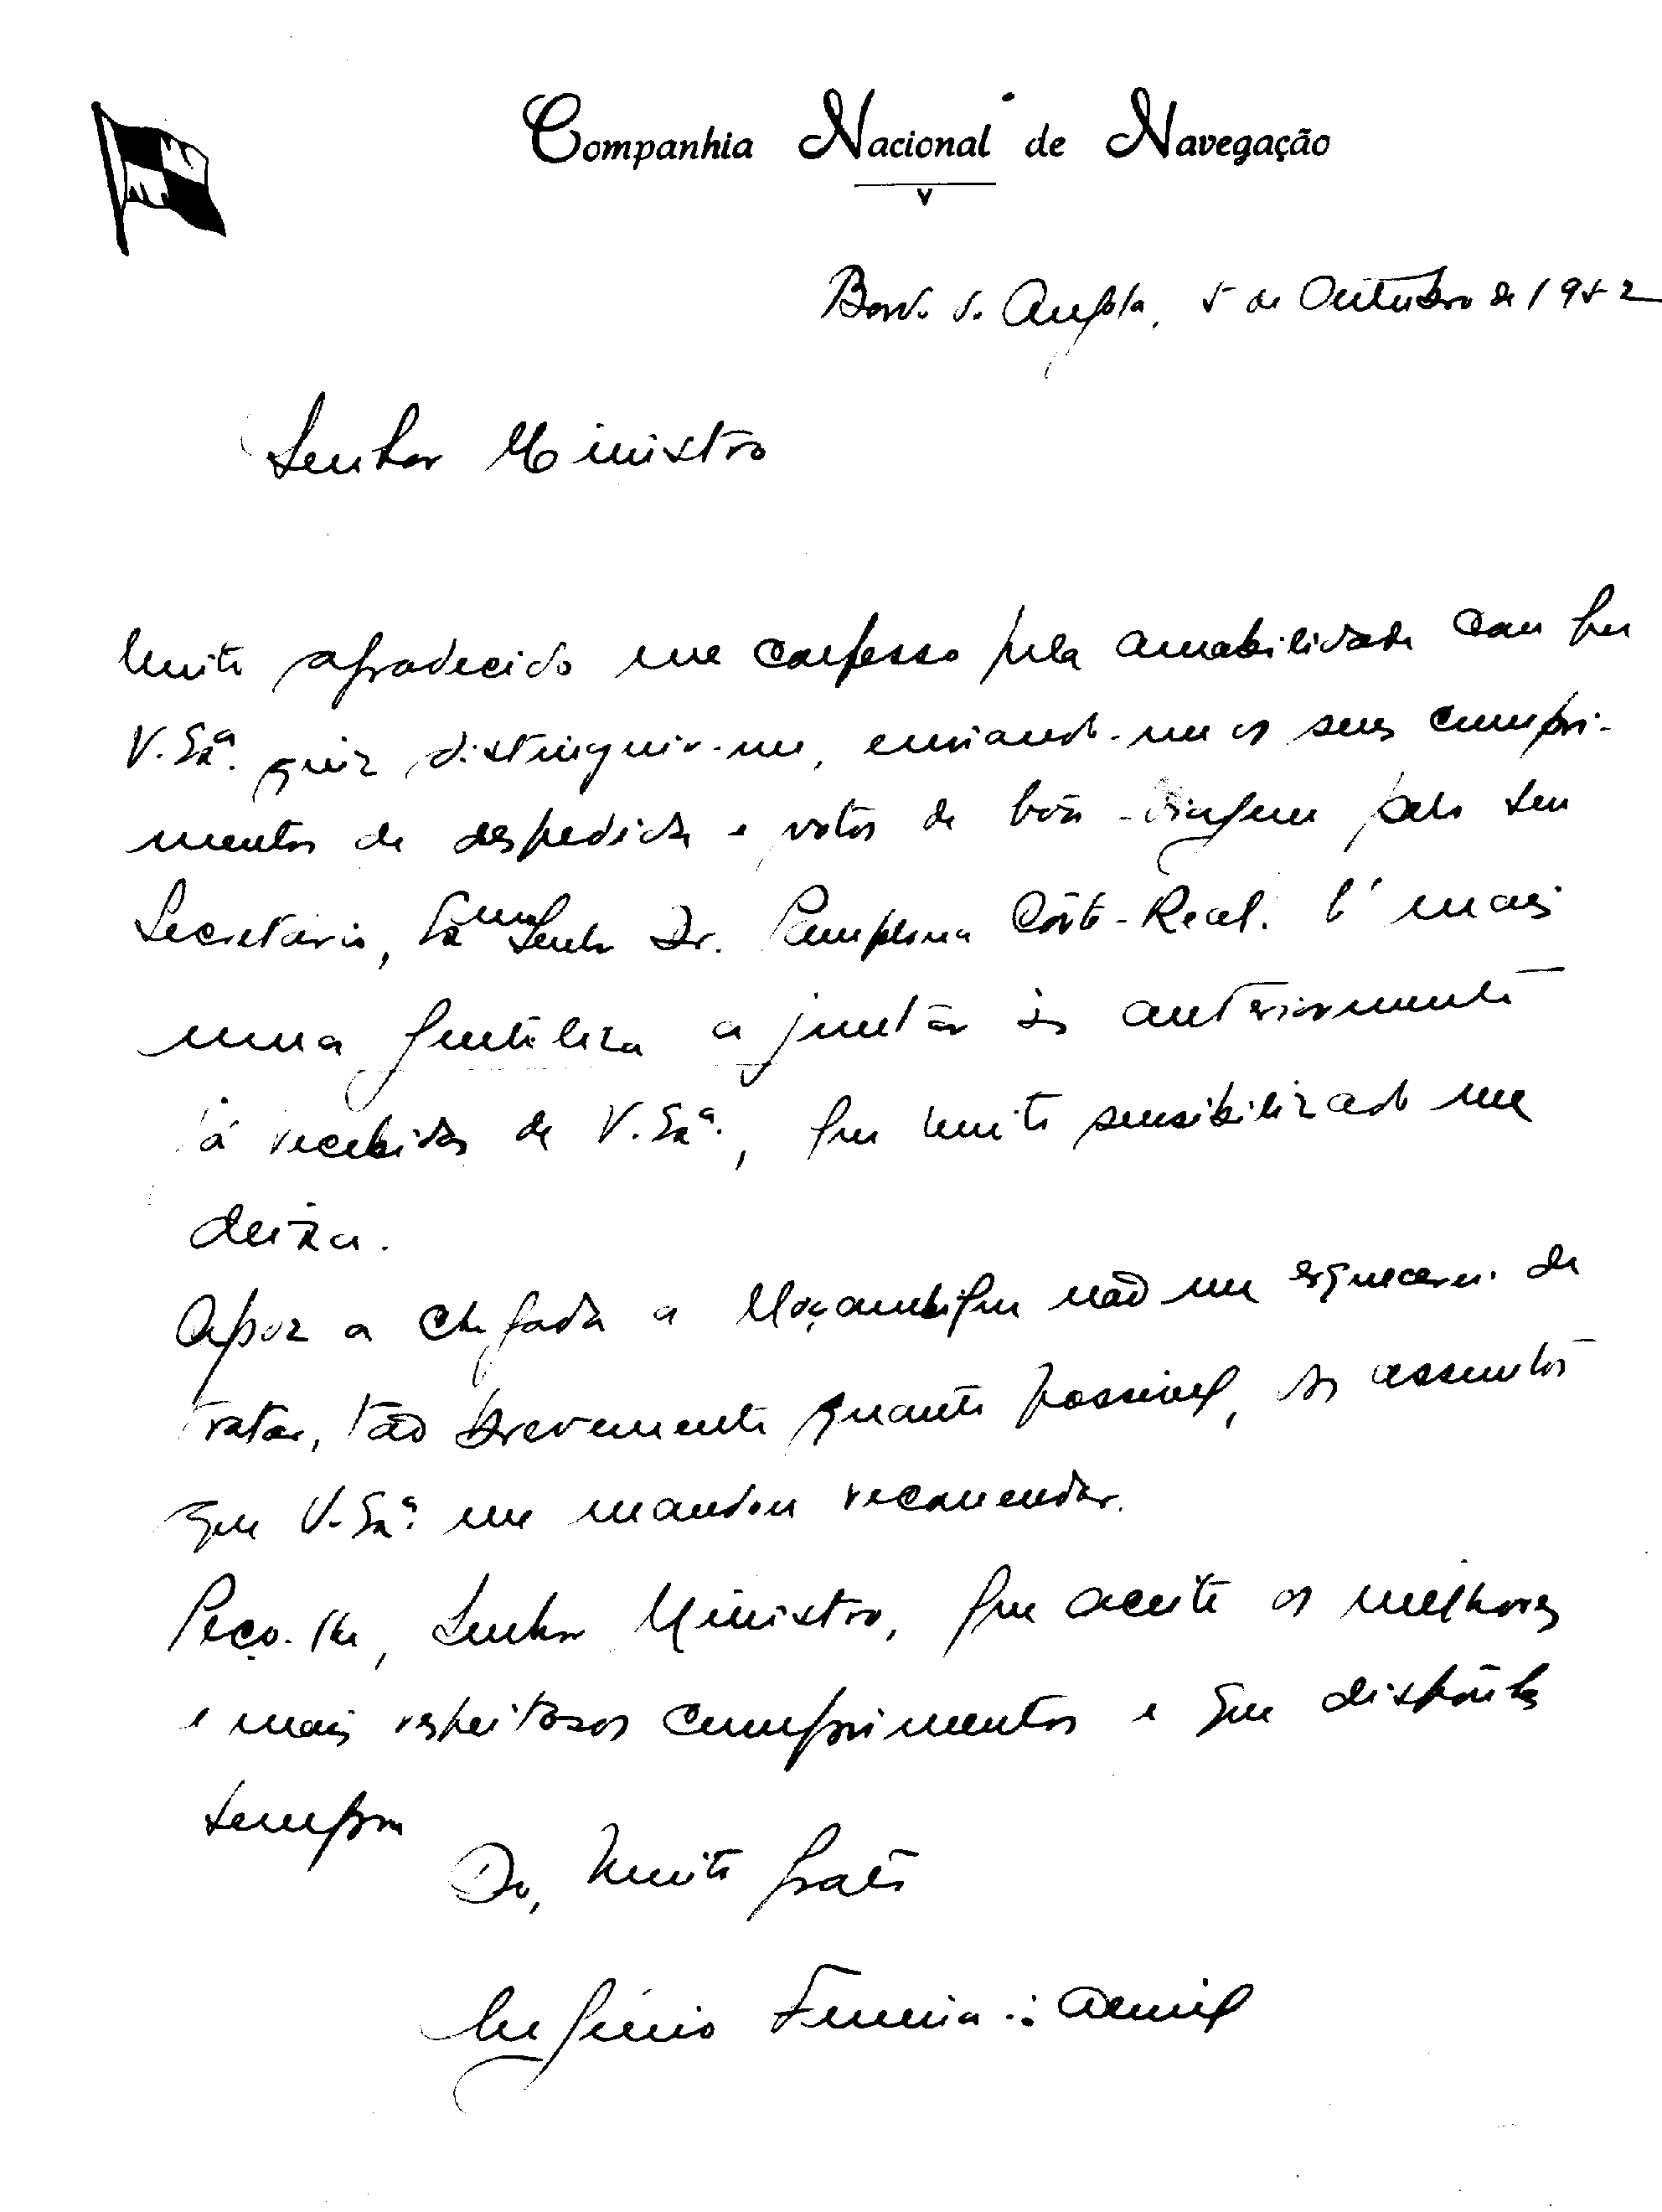 Companhia Nacional de Navegação
Bordo do Angola, 5 de Outubro de 1952
Senhor Ministro
Muito agradecido me confesso pela amabilidade com que
V. Exª. quiz distinguir-me, enviando-me os seus cumpri-
mentos de despedida e votos de bôa-viagem pelo seu
Secretário, Exmo Senhor Dr. Pamplona Côrte-Real. É mais
uma gentileza a juntar às anteriormente
já recebidas de V. Exª., que muito sensibilizado me
deixa.
Apoz a chegada a Moçambique não me esquecerei de
tratar, tão brevemente quanto possivel, os assuntos
que V. Exª. me mandou recomendar.
Peço-lhe, Senhor Ministro, que aceite os melhores
e mais respeitosos cumprimentos e que disponha
sempre
Do, Muito grato
Eugénio Ferreira de